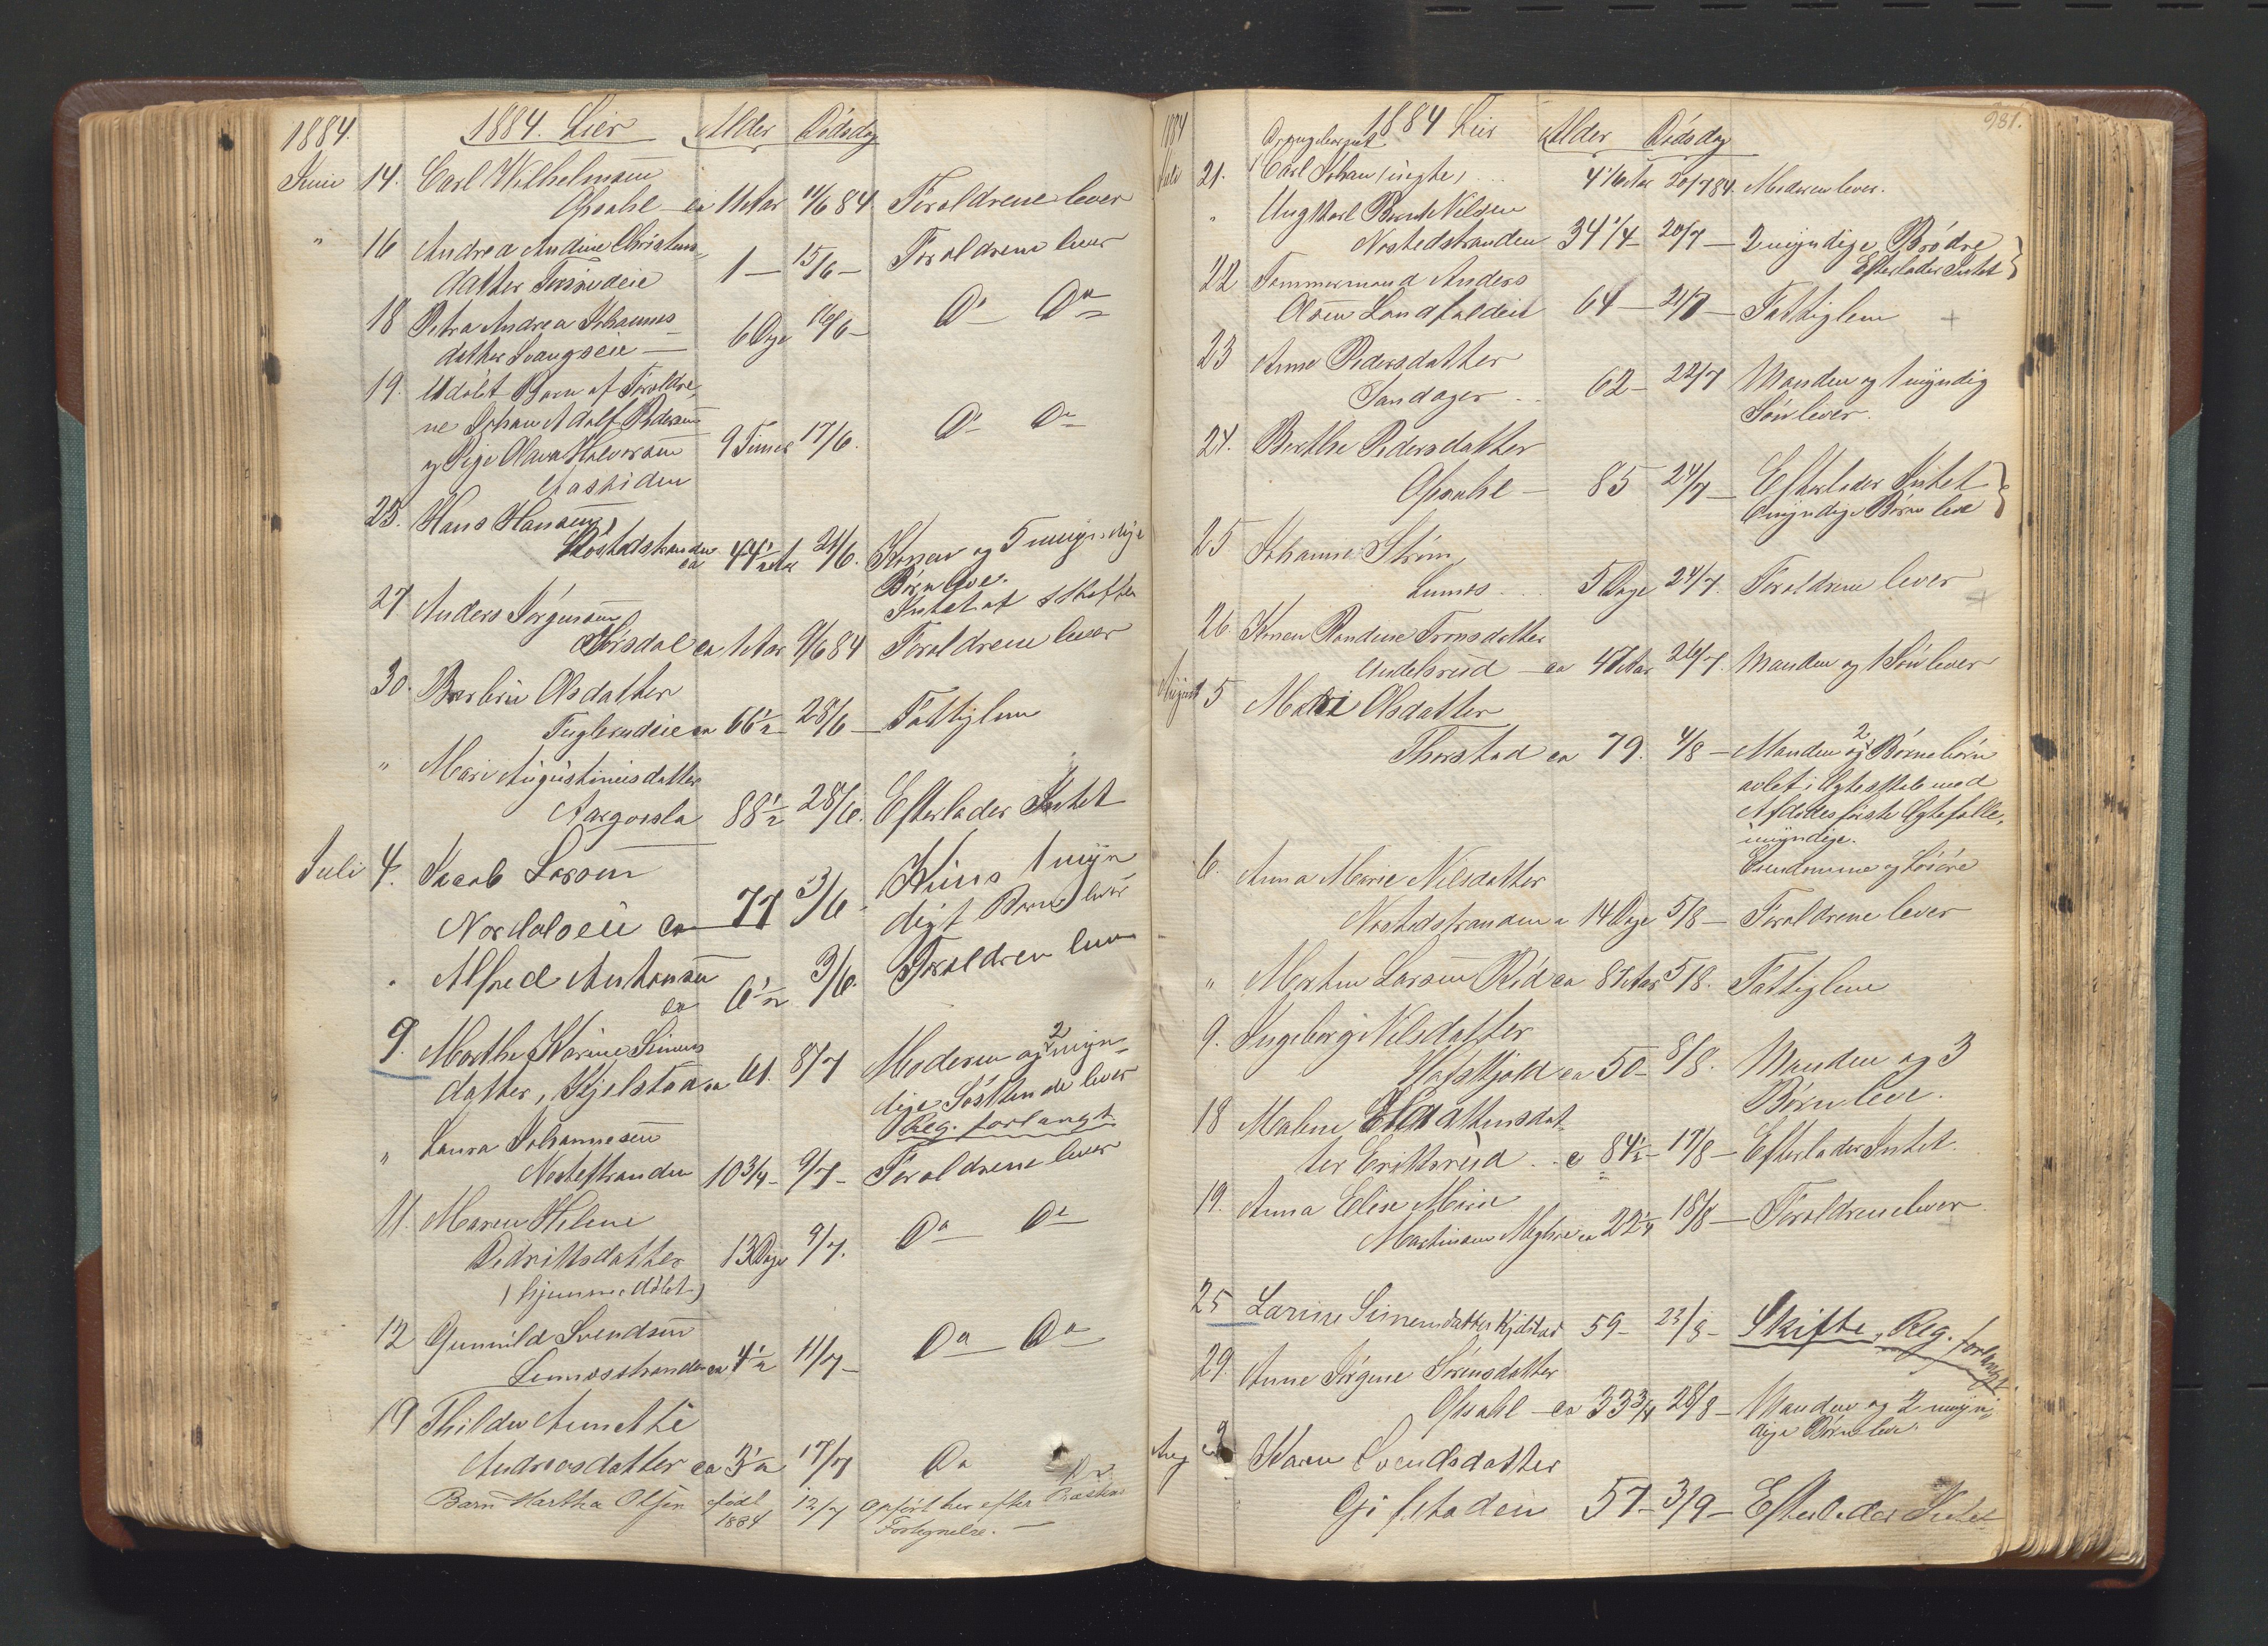 1884.
1884. Lier Alder Dødsdag
Juni 14. Carl Wilhelmsen
Opsahl ca 11 Aar 11/6 84. Forældrene lever
" 16 Andrea Andine Christens
datter 1 — 15/6 — Forældrene lever
18 Petra Andrea Johannes
datter 6 Dge 16/6 — Do Do
19. Udøbt Barn af Forældre
ne Johan Adolf Pedersen
og Pige Olava Halvorsen 9 Timer 17/6. Do Do
Aastiden
23. Hans Hansen
Nøstedstranden ca 44 1/2 Aar 21/6. Konen og 5 myndige
Børn leve.
Intet at skifte
27. Anders Jørgensen
ca 1 Aar 9/6 84 Forældrene lever
30. Berthe Olsdatter
Fuglerudeie ca 66 1/2 — 28/6 — Fattiglem
" Mari Augustinusdatter
88 1/2 28/6. Efterlader Intet
Juli 4. Jacob Larsen
ca — 77 3/6. Kun 1 myn
digt Barn lever
" Alfred Antonsen
ca 6 1/2 3/6. Forældrene lever
9. Marthe Karine Simens
datter, Kjelstad ca 61. 8/7 Moderen og 2 myn-
dige Søskende lever
Reg. forlangt
" Laura Johannesen
Nøstestranden 10 3/4 — 9/7 — Forældrene lever
11. Maren Helene
Didriksdatter 13 Dage 9/7. Do Do
(hjemmedøbt)
12 Gunnild Svendsen
Linnesstranden ca 4 1/2 11/7 — Do Do
19 Thilda Annette
Andreasdatter ca 3 1/2 17/7 Do Do
Barn Martha Olsen født 12/7 Opført her efter Præstens
1884 Fortegnelse. —
931.
1884 Drengebarnet 1884 Lier Alder Dødsdag
Juli 21. Carl Johan (uægte) . . . 4 1/6 Aar 20/7 84. Moderen lever.
" Ungkarl Bernt Nilsen
Nøstedstranden 34 1/4 — 20/7 — 2 myndige Brødre
Efterlader Intet
22 Tømmermand Anders
Olsen Landfaldeie 64 — 21/7 — Fattiglem
23 Anne Pedersdatter
Sandager . . 62 — 22/7 Manden og 1 myndig
Søn lever.
24. Berthe Pedersdatter
Opsahl — 85 24/7 — Efterlader Intet
6 myndige Børn leve
25 Johanne Strøm
Linnes . . . 5 Dage 24/7. Forældrene lever
26. Konen Randine Tronsdatter
ca 47 Aar 26/7. Manden og 1 Søn lever
August 5 Mari Olsdatter
Thorstad ca 79. 4/8 — Manden og 2 Børnebørn
avlet i Ægteskab med
Afdødes første Ægtefælle,
umyndige.
Eiendomme og Løsøre
6. Anna Marie Nilsdatter
Nøstedstranden ca 14 Dage 5/8 — Forældrene lever
" Morten Larsen Rød ca 87 Aar 5/8. Fattiglem
9. Ingeborg Nilsdatter
ca 50 — 8/8. Manden og 3
Børn leve.
18 Malene
ter Eriksrud . . c 84 1/2 — 17/8 — Efterlader Intet.
19. Anna Elise Marie
Martinsen ca 22 1/4 18/8 — Forældrene lever.
25 Larine Simensdatter Kjelstad 59 — 23/8 — Skifte, Reg. forlangt.
29. Anne Jørgine Sørensdatter
Opsahl — ca 33 3/4 28/8 — Manden og 2 umyn-
dige Børn leve.
Karen Svendsdatter
Gifstadeie 57 — 3/9 — Efterlader Intet